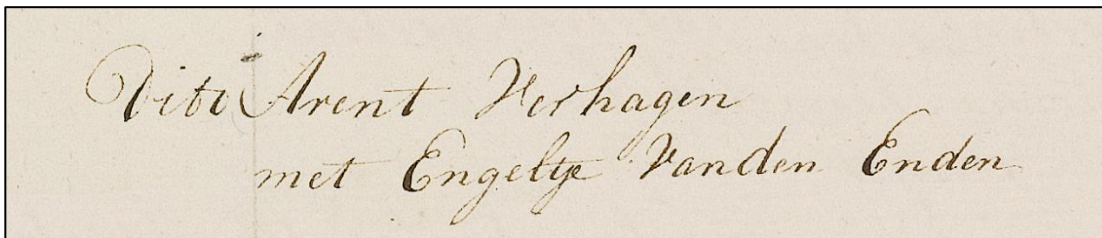 Dito Arent Verhagen
met Engeltje Vanden Enden